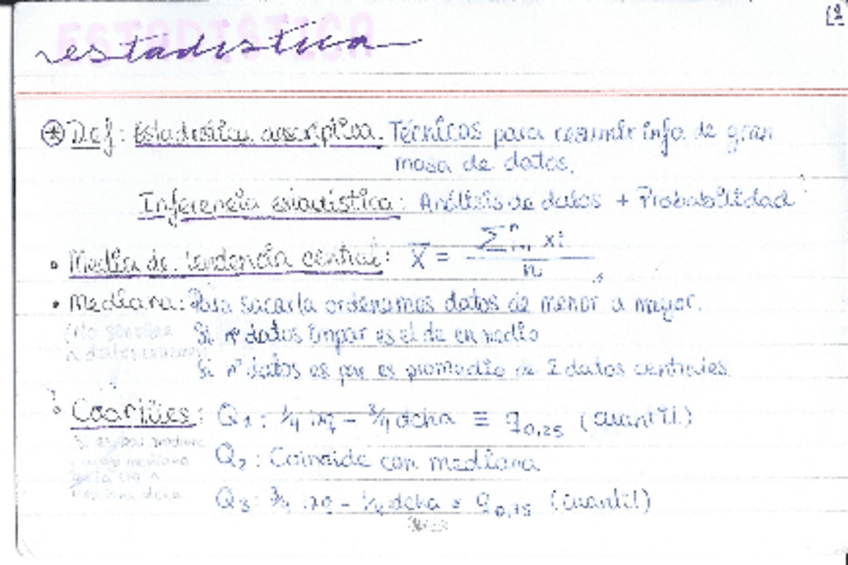 estadística
Def: Estadística descriptiva. Técnicas para resumir info de gran
masa de datos.
Inferencia estadística: Análisis de datos + Probabilidad
• Media de tendencia central: X̄ = Σⁿᵢ₌₁ xi / n
• Mediana: Para sacarla ordenamos datos de menor a mayor.
(No sensible
Si nº datos impar es el de en medio
Si nº datos es par es promedio de 2 datos centrales
• Cuartiles: Q1: 1/4 izq - 3/4 dcha ≡ q0,25 (cuantil)
Q2: Coincide con mediana
Q3: 3/4 izq - 1/4 dcha ≡ q0,75 (cuantil)